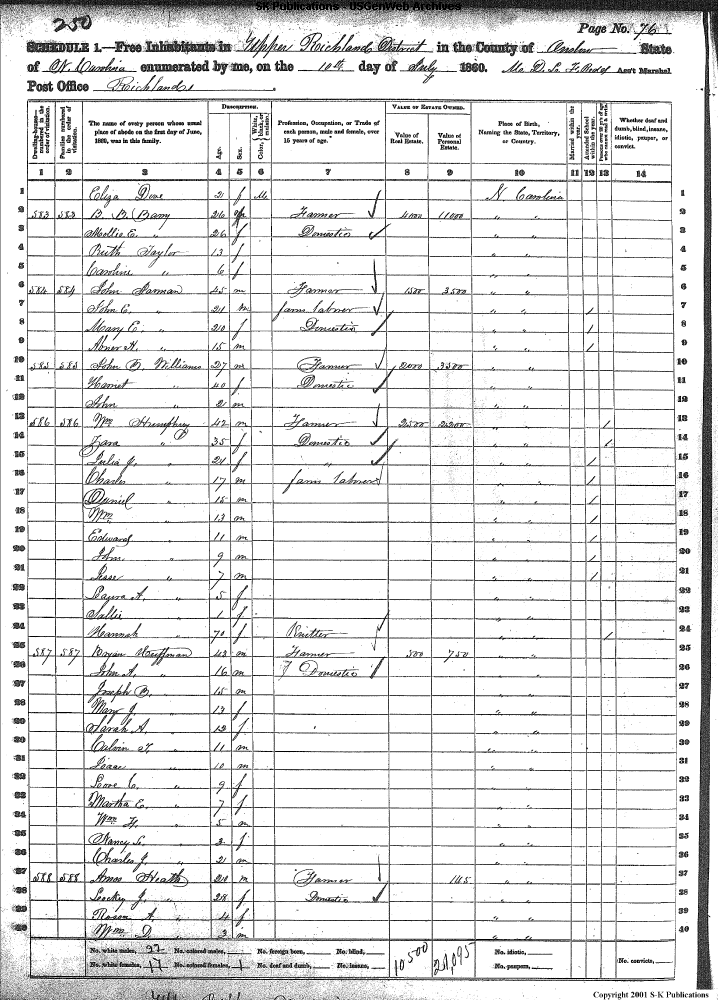 SK Publications - USGenWeb Archives
250
Page No. 76
SCHEDULE 1.—Free Inhabitants in Upper Richland District in the County of Onslow State
of N. Carolina enumerated by me, on the 10th day of July 1860. Ass't Marshal
Post Office Richlands
Dwelling-houses numbered in the order of visitation.
Families numbered in the order of visitation.
The name of every person whose usual place of abode on the first day of June, 1860, was in this family.
DESCRIPTION.
Age.
Sex.
Color, White, black, or mulatto.
Profession, Occupation, or Trade of each person, male and female, over 15 years of age.
VALUE OF ESTATE OWNED.
Value of Real Estate.
Value of Personal Estate.
Place of Birth, Naming the State, Territory, or Country.
Married within the year.
Attended School within the year.
Whether deaf and dumb, blind, insane, idiotic, pauper, or convict.
1 2 3 4 5 6 7 8 9 10 11 12 13 14
1 Eliza 21 f N Carolina 1
2 583 583 B. B. Barry 26 Farmer 4000 11000 " " 2
3 Mollie E. " 26 f Domestic " " 3
4 Ruth Taylor 13 f " " 4
5 Caroline " 6 f " " 5
6 584 584 John 45 m Farmer 1500 3500 " " 6
7 John E. " 21 m farm labner " " / 7
8 Mary E. " 20 f Domestic " " / 8
9 Abner H. " 15 m " " / 9
10 585 585 John B. Williams 27 m Farmer 2000 3500 " " 10
11 " 40 f Domestic " " 11
12 John " 2 m " " 12
13 586 586 Wm Humphrey 42 m Farmer 2500 " " / 13
14 Zara " 35 f Domestic " " / 14
15 Julia J. " 21 f " " " / 15
16 Charles " 17 m farm labner " " / 16
17 Daniel " 15 m " " / 17
18 Wm " 13 m " " / 18
19 Edward " 11 m " " / 19
20 John " 9 m " " / 20
21 Jesse " 7 m " " / 21
22 Laura A. " 5 f " " 22
23 Sallie " 1 f " " 23
24 Hannah " 70 f Knitter " " / 24
25 587 587 Bryan Huffman 48 m Farmer 300 750 " " 25
26 John A. " 16 m Domestic " " 26
27 Joseph B. " 15 m " " 27
28 Mary J. " 13 f " " 28
29 Sarah A. " 12 f " " 29
30 Calvin " 11 m " " 30
31 Isaac " 10 m " " 31
32 " 9 f " " 32
33 Martha E. " 7 f " " 33
34 Wm H. " 5 m " " 34
35 Nancy S. " 3 f " " 35
36 Charles J. " 2 m " " 36
37 588 588 Amos Heath 29 m Farmer 145 " " 37
38 J. " 28 f Domestic " " 38
39 A. " 4 f " " 39
40 Wm D. " 3 m " " 40
No. white males, 22 No. colored males, No. foreign born, No. blind, 10500 21,095 No. idiotic,
No. white females, 17 No. colored females, 1 No. deaf and dumb, No. insane, No. paupers, No. convicts,
Copyright 2001 S-K Publications